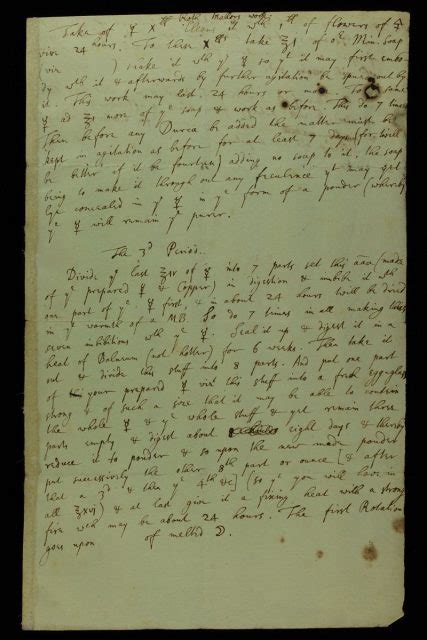 Take of ☿ X ℔ Cleans it wth ℔ of flowers of 🜍
vive 24 hours. To these X ℔s take ℥j of or Min. Soap
(viz ) shake it wth ye ☿ so yt it may first embo-
dy wth it & afterwards by further agitation be spued out by
it. This work may last 24 hours or more. To the same
☿ ad ℥j more of ye soap & work as before. This do 7 times
Then before any Durca be added the matter must be
kept in agitation as before for at least 7 days (for twill
be better if it be fourteen) adding no soap to it, the soap
being to make it through out any feculence yt may yet
lye concealed in ye ☿ in ye form of a pouder (whereby
ye ☿ will remain ye purer.
The 3d Period.
Divide ye last of ☿ into 7 parts set this āāā (made
of ye prepared ☿ & Copper) in digestion & imbibe it wth
one part of ye ☿ first, & in about 24 hours will be dried
in ye warmth of a MB. So do 7 times in all making thus
seven inbibitions wth ye ☿. Seal it up & digest it in a
heat of Balneum (not hotter) for 6 weeks. Then take it
out & divide this stuff into 8 parts. And put one part
of your prepared ☿ viz this stuff into a fresh eggglass
strong & of such a size that it may be able to contein
the whole ☿ & ye whole stuff & yet remain three
parts empty & digest about eight days & thereby
reduce it to pouder & so upon the new made pouder
put successively the other 8th part or ounce [& after
that a 3d & then ye 4th &c] (so ye you will have in
all ℥xvj) & at last give it a fixing heat with a strong
fire wch may be about 24 hours. The first Rotation
goes upon of melted ☽.